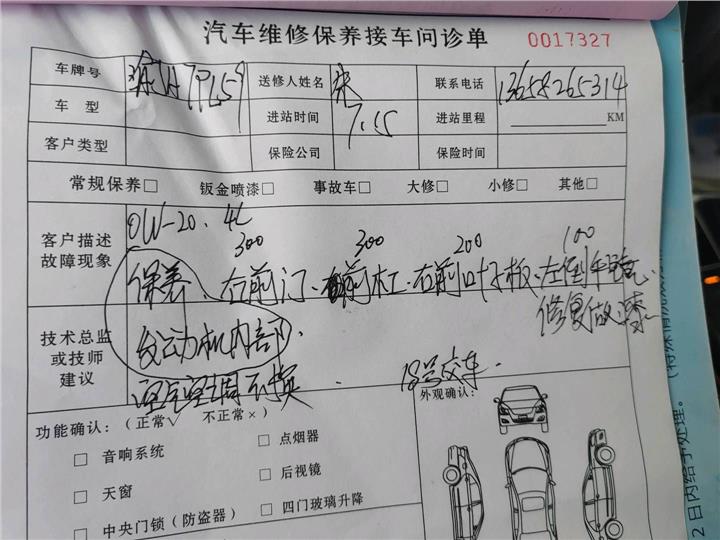 汽车维修保养接车问诊单 0017327
车牌号 送修人姓名 联系电话 13658265314
车型 进站时间 7.15 进站里程 KM
客户类型 保险公司 保险时间
常规保养□ 钣金喷漆□ 事故车□ 大修□ 小修□ 其他□
客户描述
故障现象
0W-20. 4L
300 300 200 100
保养、右前门、前杠、右前叶子板、左倒车镜
修复做漆
技术总监
或技师
建议
发动机内部
空气空调不换
18号交车.
功能确认：（正常√ 不正常×） 外观确认：
□ 音响系统 □ 点烟器
□ 天窗 □ 后视镜
□ 中央门锁（防盗器） □ 四门玻璃升降
2日内给予处理。